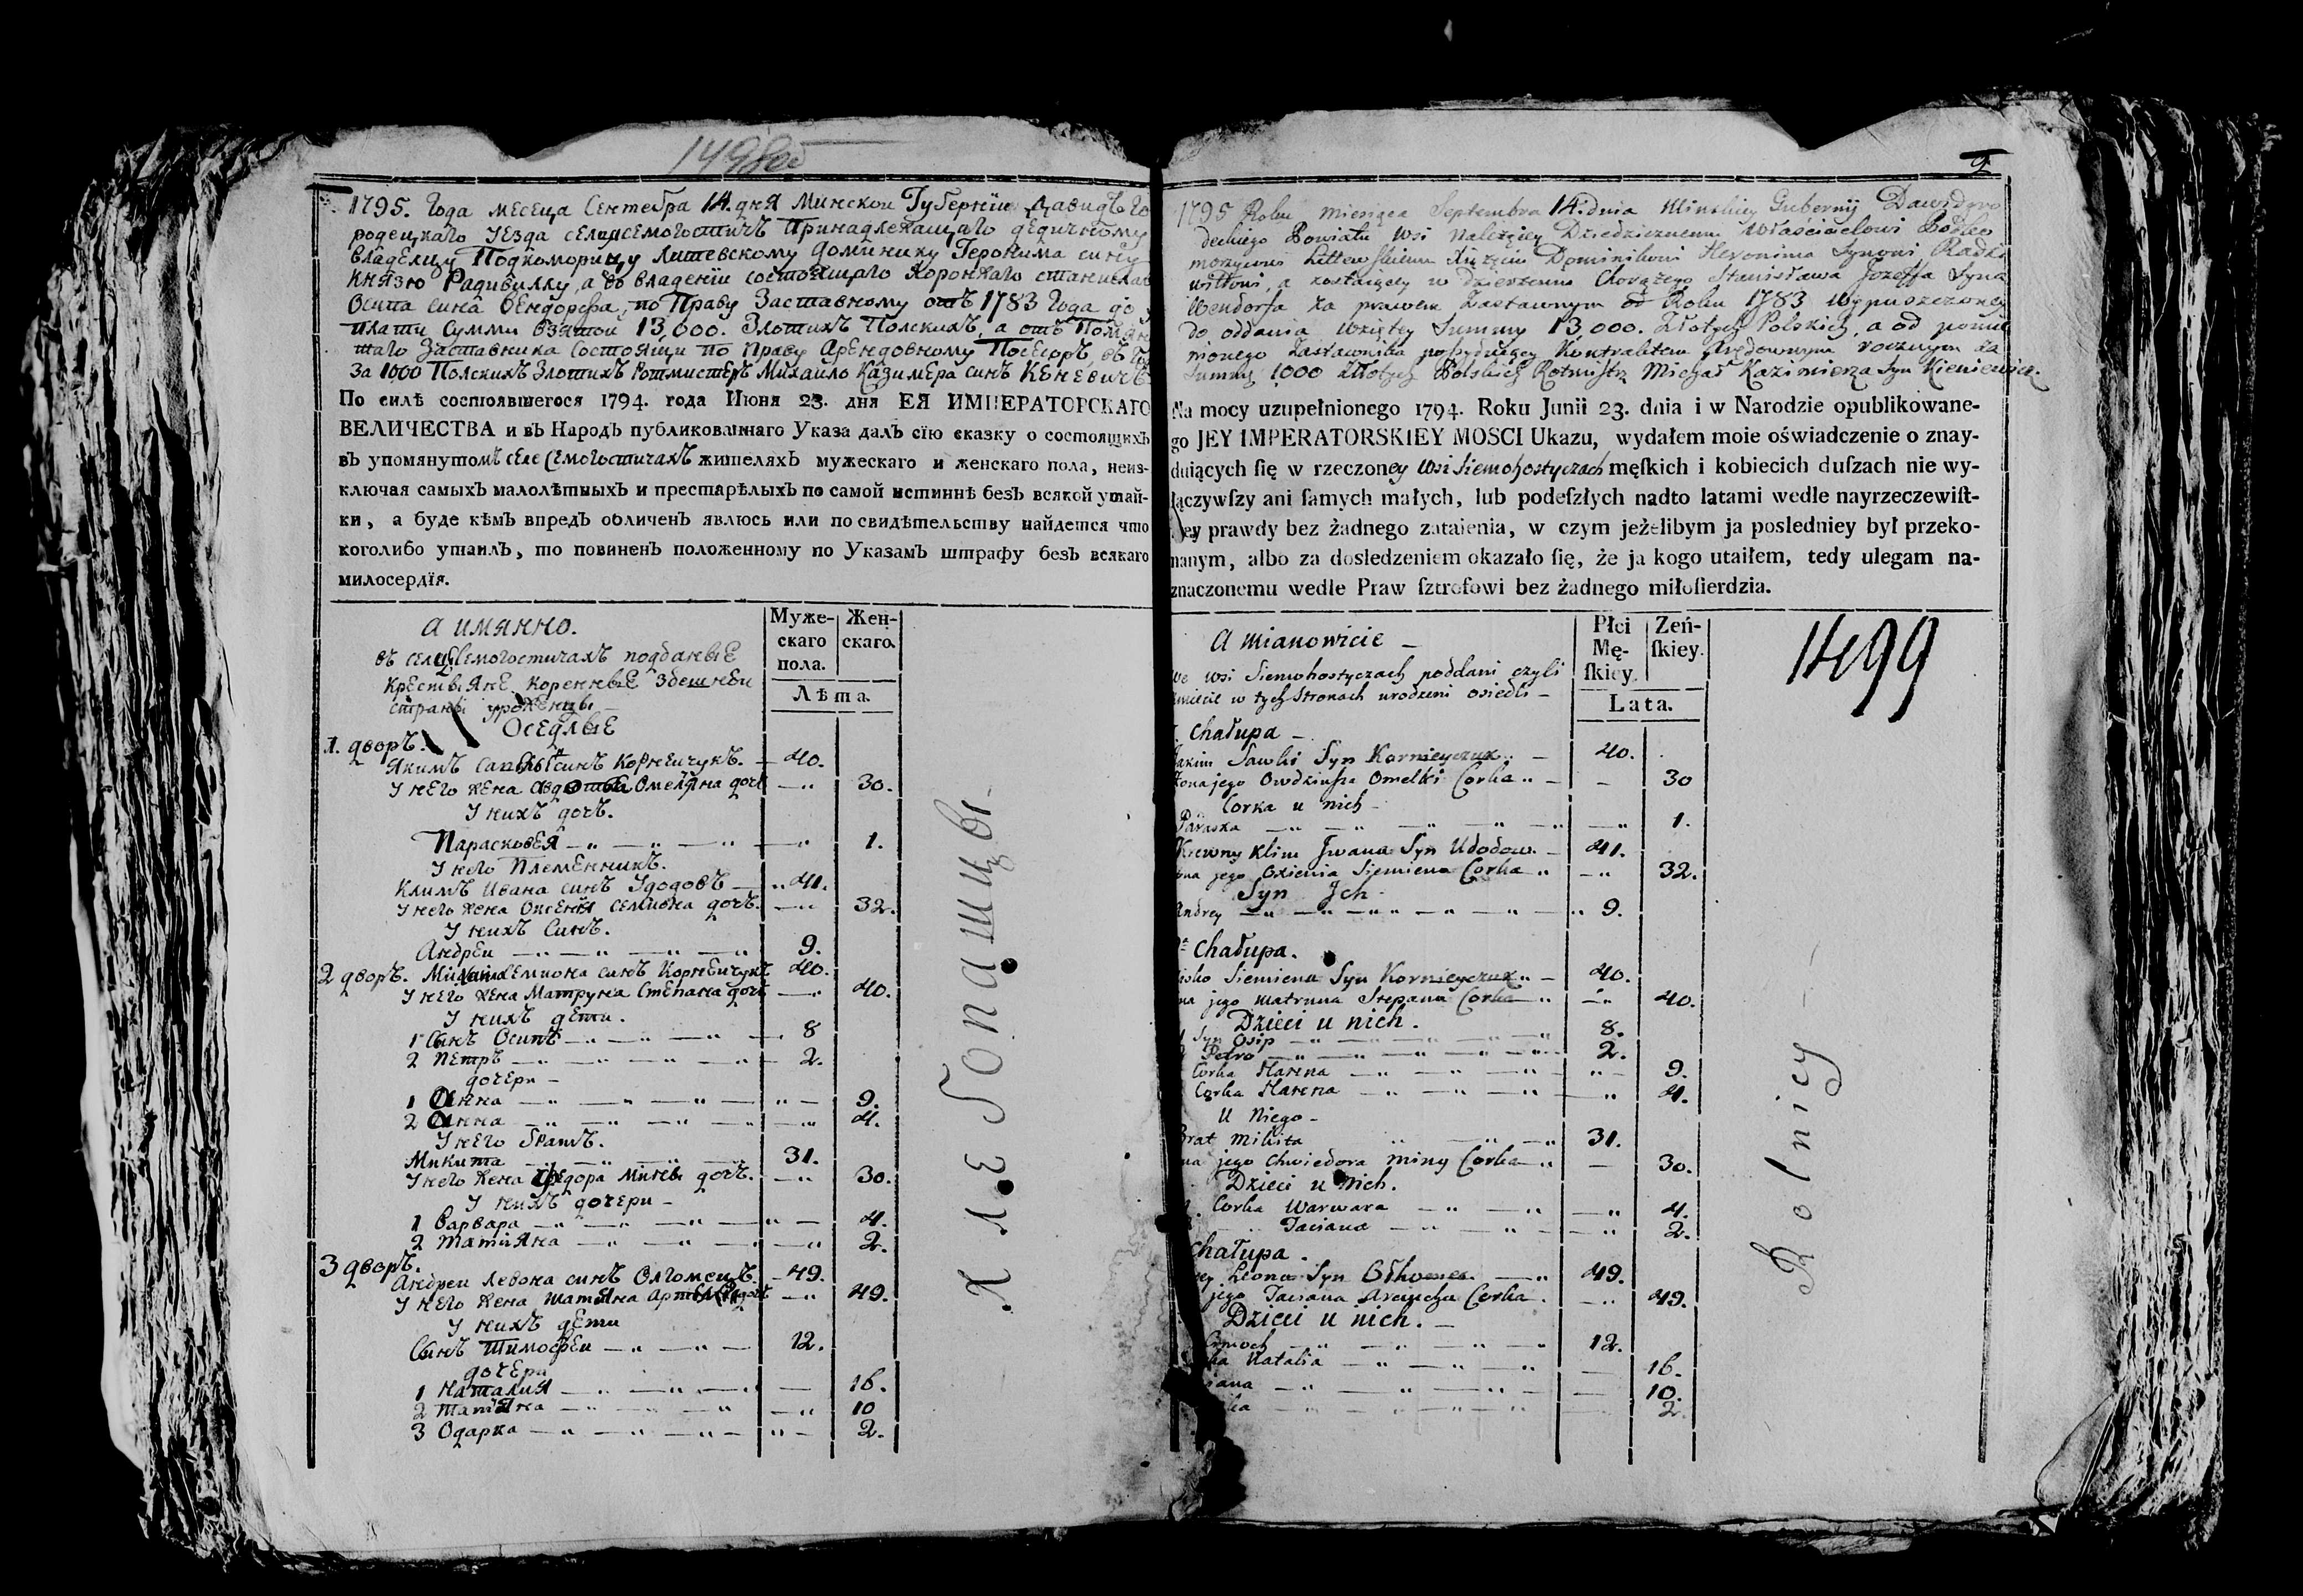 1498об
1795. Года месеца Сентебра 14. дня Минскои Губернïи Давидъ Го
родецкаго Уезда села Семогостичъ Принадлежащаго дедичному
владелцу Подкоморицу Литевскому Доминику Геронима сину
Князю Радивиллу, а въ владенïи состоящаго Хоронжаго станислав
Осипа сина Вендорфа, по Праву Заставному отъ 1783 Года до
плати Сумми взятои 13,000. Злотихъ Полскихъ, а отъ Помян
таго Заставника Состоящи по Праву Арендовному Посессръ, въ
За 1000 Полскихъ Злотихъ Ротмистеръ Михаило Казимера синъ Кеневичъ
По силѣ состоявшегося 1794. года Июня 23. дня ЕЯ ИМПЕРАТОРСКАГО
ВЕЛИЧЕСТВА и въ Народъ публикованнаго Указа далъ сïю сказку о состоящихъ
въ упомянутомъ селе Семогостичахъ жителяхъ мужескаго и женскаго пола, неиз-
ключая самыхъ малолѣтныхъ и престарѣлыхъ по самой истиннѣ безъ всякой утай-
ки, а буде кѣмъ впредъ обличенъ явлюсь или по свидѣтельству найдется что
коголибо утаилъ, то повиненъ положенному по Указамъ штрафу безъ всякаго
милосердïя.
а имянно.
Муже-
скаго
пола.
Жен-
скаго.
Лѣта.
въ селе Семогостичахъ подданые
Крестьяне коренные здешнеи
страны уроженцы
Оседлые
1. дворъ.
Якимъ Савы синъ Корнеичукъ. — 40.
У него жена Авдотьа Омеляна доч — " 30.
У нихъ дочъ.
Парасковея — " — " — " — " 1.
У него Племенникъ.
Климъ Ивана синъ Удодовъ — " 41.
У него жена Оксеня Семиона дочъ. — " 32.
У нихъ Синъ.
Андреи — " — " — " — " 9.
2 дворъ. Миско Семиона синъ Корнеичукъ 40.
У него жена Матруна Степана доч — " 40.
У нихъ дети.
1 Синъ Осипъ — " — " — " — 8
2 Петръ — " — " — " — " — 2.
дочери —
1 Анна — " — " — " — " — 9.
2 Анна — " — " — " — " — " 4.
У него братъ.
Микита — " — " — " 31.
У него жена Федора Мины дочъ. — " 30.
У нихъ дочери —
1 Варвара — " — " — " — " — 4.
2 Татияна — " — " — " — " 2.
3 дворъ.
Андреи Левона синъ Олгомецъ. — 49.
У него жена Татяна доч — " 49.
У нихъ дети
Синъ Тимофеи — " — " — 12.
дочери
1 Наталия — " — " — " — 16.
2 Татияна — " — " — " — " 10
3 Одарка — " — " — " — " — 2.
Хлебопашцы
2
1795 Roku miesiąca Septembra 14. dnia Minskiey Gubernij Dawidgro
deckiego Powiatu Wsi Należącey Dziedzicznemu Właścicielowi Podko
morzycowi Littewskiemu Xiążęciu Dominikowi Heronima Synowi Radzi
wiłłowi, a zostaiącey w dzierzeniu Chorążego Stanisława Jozeffa Syna
Wendorfa za prawem Zastawnym od Roku 1783 wypuszczoney
do oddania wziętey Summy 13 000. Złotych Polskich, a od pomie
nionego Zastawnika possyduiący Kontraktem Arędownym rocznym za
Summę 1000 Złłotych Polskich Rotmistrz Michał Kazimierza Syn Kieniewicz.
Na mocy uzupełnionego 1794. Roku Junii 23. dnia i w Narodzie opublikowane-
go JEY IMPERATORSKIEY MOSCI Ukazu, wydałem moie oświadczenie o znay-
duiących ſię w rzeczoney Wsi Siemohostyczach męſkich i kobiecich duſzach nie wy-
łączywſzy ani ſamych małych, lub podeſzłych nadto latami wedle nayrzeczewiſt-
ſzey prawdy bez żadnego zataienia, w czym jeżelibym ja posledniey był przeko-
nanym, albo za dosledzeniem okazało ſię, że ja kogo utaiłem, tedy ulegam na-
znaczonemu wedle Praw ſztrofowi bez żadnego miłoſierdzia.
A mianowicie —
Płci
Mę-
ſkiey.
Zeń-
ſkiey.
Lata.
1499
we wsi Siemohostyczach poddani czyli
kmiecie w tych Stronach urodzeni osiedli —
Chałupa —
Jakim Sawki Syn Kornieyczuk " — 40.
Żona jego Owdziusza Omelki Corka " — — 30
Corka u nich —
Paraska — " — " — " — " — " — " 1.
Krewny Klim Jwana Syn Udodow. — 41.
ona jego Oxienia Siemiena Corka " — " 32.
Syn Jch
Andrey — " — " — " — " — " — " 9.
Chałupa.
isko Siemiena Syn Korniejczuk " — 40.
na jego Matruna Stepana Corka " — " 40.
Dzieci u nich.
1 Syn Osip — " — " — " — " 8.
2 Pedro — " — " — " — " — 2.
Corka Hanna — " — " — " " — 9.
Corka Hanna — " — " — " — " 4.
U Niego —
Brat Mikita " — " — " 31.
na jego Chwiedora Miny Corka " — 30.
Dzieci u nich.
Corka Warwara — " — " — " 4.
Taciana — " — " — " 2.
Chałupa.
ey Leona Syn Olhomec. — " 49.
jego Taciana Corka. — " 49.
Dzieci u nich. —
Cimoch — " — " — " — " 12.
ka Natalia — " — " — " — 16.
iana — " — " — " — — 10.
ka — " — " — " — 2.
Rolnicy —